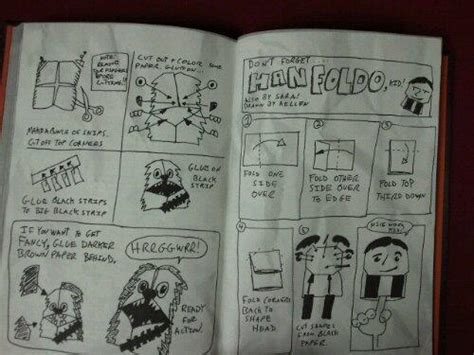 NOTE:
BEFORE
CUT OUT + COLOR SOME
PAPER. GLUE ON...
MAKE A BUNCH OF SNIPS.
CUT OFF TOP CORNERS
GLUE BLACK STRIPS
TO BIG BLACK STRIP
GLUE ON
BLACK
STRIP
IF YOU WANT TO GET
FANCY, GLUE DARKER
BROWN PAPER BEHIND.
HRRGGWRR!
READY
FOR
ACTION.
DON'T FORGET...
HAN FOLDO, KID!
ALSO BY SARA!
DRAWN BY KELLEN
1
FOLD ONE
SIDE
OVER
2
FOLD OTHER
SIDE OVER
TO EDGE
3
FOLD TOP
THIRD DOWN
4
FOLD CORNERS
BACK TO
SHAPE
HEAD.
5
CUT SHAPES
FROM BLACK
PAPER.